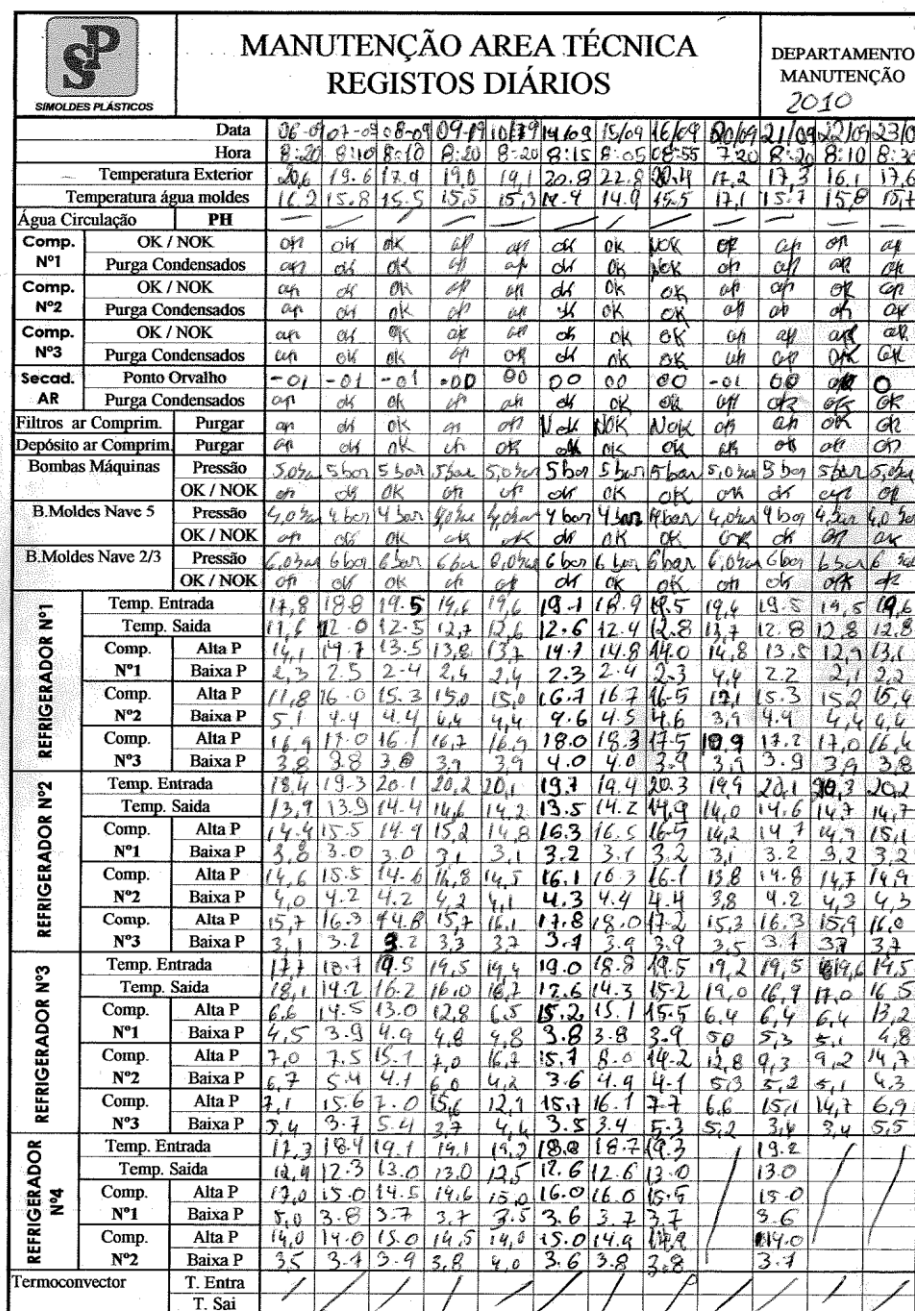 SP
SIMOLDES PLÁSTICOS
MANUTENÇÃO AREA TÉCNICA
REGISTOS DIÁRIOS
DEPARTAMENTO
MANUTENÇÃO
2010
Data 06-09 07-09 08-09 09-09 14/09 15/09 16/09 20/09 21/09 22/09 23/0
Hora 8:20 8:10 8:10 8:20 8:20 8:15 8:05 08:55 7:20 8:20 8:10 8:30
Temperatura Exterior 20,6 19.6 17.9 19,0 19,1 20.8 22.8 20.4 17,2 17,3 16,1 17,6
Temperatura água moldes 16.2 15.8 15.5 15,5 15,3 14.9 15.5 17,1 15.7 15,8 15,7
Água Circulação PH
Comp. Nº1 OK / NOK ok ok ok ok ok ok ok NOK ok ok ok ok
Purga Condensados ok ok ok ok ok ok ok NOK ok ok ok ok
Comp. Nº2 OK / NOK ok ok ok ok ok ok ok ok ok ok ok ok
Purga Condensados ok ok ok ok ok ok ok ok ok ok ok ok
Comp. Nº3 OK / NOK ok ok ok ok ok ok ok ok ok ok ok ok
Purga Condensados ok ok ok ok ok ok ok ok ok ok ok ok
Secad. AR Ponto Orvalho -01 -01 -01 00 00 00 00 -01 00 0
Purga Condensados ok ok ok ok ok ok ok ok ok ok ok ok
Filtros ar Comprim. Purgar ok ok ok ok ok Nok NOK Nok ok ok ok ok
Depósito ar Comprim. Purgar ok ok ok ok ok ok ok ok ok ok ok ok
Bombas Máquinas Pressão 5,0bar 5 bar 5 bar 5bar 5,0bar 5 bar 5 bar 5 bar 5,0bar 5 bar 5bar 5,0bar
OK / NOK ok ok ok ok ok ok ok ok ok ok ok ok
B.Moldes Nave 5 Pressão 4,0bar 4 bar 4 bar 4,0bar 4,0bar 4 bar 4 bar 4 bar 4,0bar 4 bar 4,0 bar
OK / NOK ok ok ok ok ok ok ok ok ok ok ok ok
B.Moldes Nave 2/3 Pressão 6,0bar 6 bar 6 bar 6 bar 6,0bar 6 bar 6 bar 6 bar 6,0bar 6 bar 6 bar 6 bar
OK / NOK ok ok ok ok ok ok ok ok ok ok ok ok
REFRIGERADOR Nº1
Temp. Entrada 17,8 18.8 19.5 19,6 19,6 19.1 18.9 19.5 19,4 19.5 19,5 19,6
Temp. Saida 11,6 12.0 12.5 12,7 12,6 12.6 12.4 12.8 13,7 12.8 12,8 12,8
Comp. Nº1 Alta P 14,1 14.7 13.5 13,8 13,7 14.1 14.8 14.0 14,8 13.5 12,9 13,1
Baixa P 2,3 2.5 2.4 2,4 2,4 2.3 2.4 2.3 4,4 2.2 2,1 2,2
Comp. Nº2 Alta P 11,8 16.0 15.3 15,0 15,0 16.7 16.7 16.5 17,1 15.3 15,2 15,4
Baixa P 5,1 4.4 4.4 4,4 4,4 4.6 4.5 4.6 3,9 4.4 4,4 4,4
Comp. Nº3 Alta P 16,9 17.0 16.1 16,7 16,9 18.0 18.3 17.5 17.2 17,0 16,4
Baixa P 3,8 3.8 3.8 3,9 3,9 4.0 4.0 3.9 3,9 3.9 3,9 3,8
REFRIGERADOR Nº2
Temp. Entrada 18,4 19.3 20.1 20,2 20,1 19.7 19.4 20.3 19,9 20,1 20,3 20,2
Temp. Saida 13,9 13.9 14.4 14,6 14,2 13.5 14.2 14.9 14,0 14.6 14,7 14,7
Comp. Nº1 Alta P 14.4 15.5 14.9 15,2 14,8 16.3 16.5 16.5 14,2 14.7 14,9 15,1
Baixa P 3,8 3.0 3.0 3,1 3,1 3.2 3.1 3.2 3,1 3.2 3,2 3,2
Comp. Nº2 Alta P 14,6 15.5 14.6 14,8 14,5 16.1 16.3 16.1 13,8 14.8 14,7 14,9
Baixa P 4,0 4.2 4.2 4,2 4,1 4.3 4.4 4.4 3,8 4.2 4,3 4,3
Comp. Nº3 Alta P 15,7 16.3 14.8 15,7 16,1 17.8 18.0 17.2 15,3 16.3 15,9 16,0
Baixa P 3,1 3.2 3.2 3,3 3,7 3.9 3.9 3,5 3,7 3,7
REFRIGERADOR Nº3
Temp. Entrada 17,7 18.7 19.5 19,5 19,4 19.0 18.8 19.5 19,2 19,5 19,6 19,5
Temp. Saida 18,1 14.2 16.2 16,0 16,7 12.6 14.3 15.2 19,0 16,9 17,0 16,5
Comp. Nº1 Alta P 6,6 14.5 13.0 12,8 6,5 15.2 15.1 15.5 6,4 6,4 6,4 13,2
Baixa P 4,5 3.9 4.9 4,8 4,8 3.8 3.8 3.9 5,0 5,3 5,1 4,8
Comp. Nº2 Alta P 7,0 7.5 15.1 7,0 16,2 15.7 8.0 14.2 12,8 9,3 9,2 14,7
Baixa P 6,7 5.4 4.1 6,0 4,2 3.6 4.9 4.1 5,3 5,2 5,1 4,3
Comp. Nº3 Alta P 7,1 15.6 7.0 15,6 12,9 15.7 16.1 7.7 6,6 15,1 14,7 6,9
Baixa P 5,4 3.7 5.4 3,7 4,4 3.5 3.4 5.3 5,2 3,4 3,4 5,5
REFRIGERADOR Nº4
Temp. Entrada 17,3 18.4 19.1 19,1 19,2 18.8 18.7 19.3 19.2
Temp. Saida 12,4 12.3 13.0 13,0 12,5 12.6 12.6 13.0 13.0
Comp. Nº1 Alta P 17,0 15.0 14.5 14,6 15,0 16.0 16.0 15.5 15.0
Baixa P 5,0 3.8 3.7 3,7 3.5 3.6 3.7 3.7 3.6
Comp. Nº2 Alta P 14,0 14.0 15.0 14,5 14,0 15.0 14.9 14.9 14.0
Baixa P 3,5 3.7 3.9 3,8 4,0 3.6 3.8 3.8 3.7
Termoconvector T. Entra
T. Sai